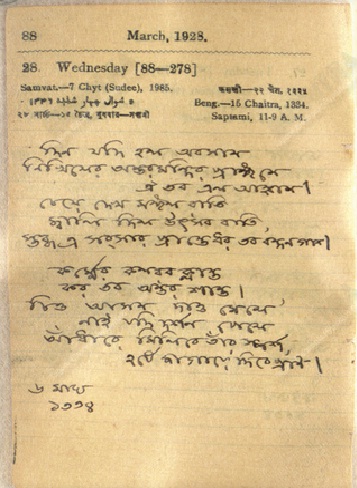 88 March, 1928.
28. Wednesday [88—278]
Samvat.—7 Chyt (Sudee), 1985.
Beng.—15 Chaitra, 1334.
Saptami, 11-9 A. M.
দিন যদি হল অবসান
নিখিলের অন্তরমন্দির প্রাঙ্গণে
ঐ তব এল আহ্বান।
চেয়ে দেখ মঙ্গল রাতি
জ্বালি দিল উৎসব বাতি,
স্তব্ধ এ সংসার প্রান্তে ধর তব বন্দন গান।
কর্ম্মের কলরব ক্লান্ত
কর তব অন্তর শান্ত।
চিত্ত আসন দাও মেলে
নাই যদি দর্শন পেলে
আঁধারে মিলিবে তাঁর স্পর্শ,
হর্ষে জাগায়ে দিবে প্রাণ।
৬ মাঘ
১৩৩৪